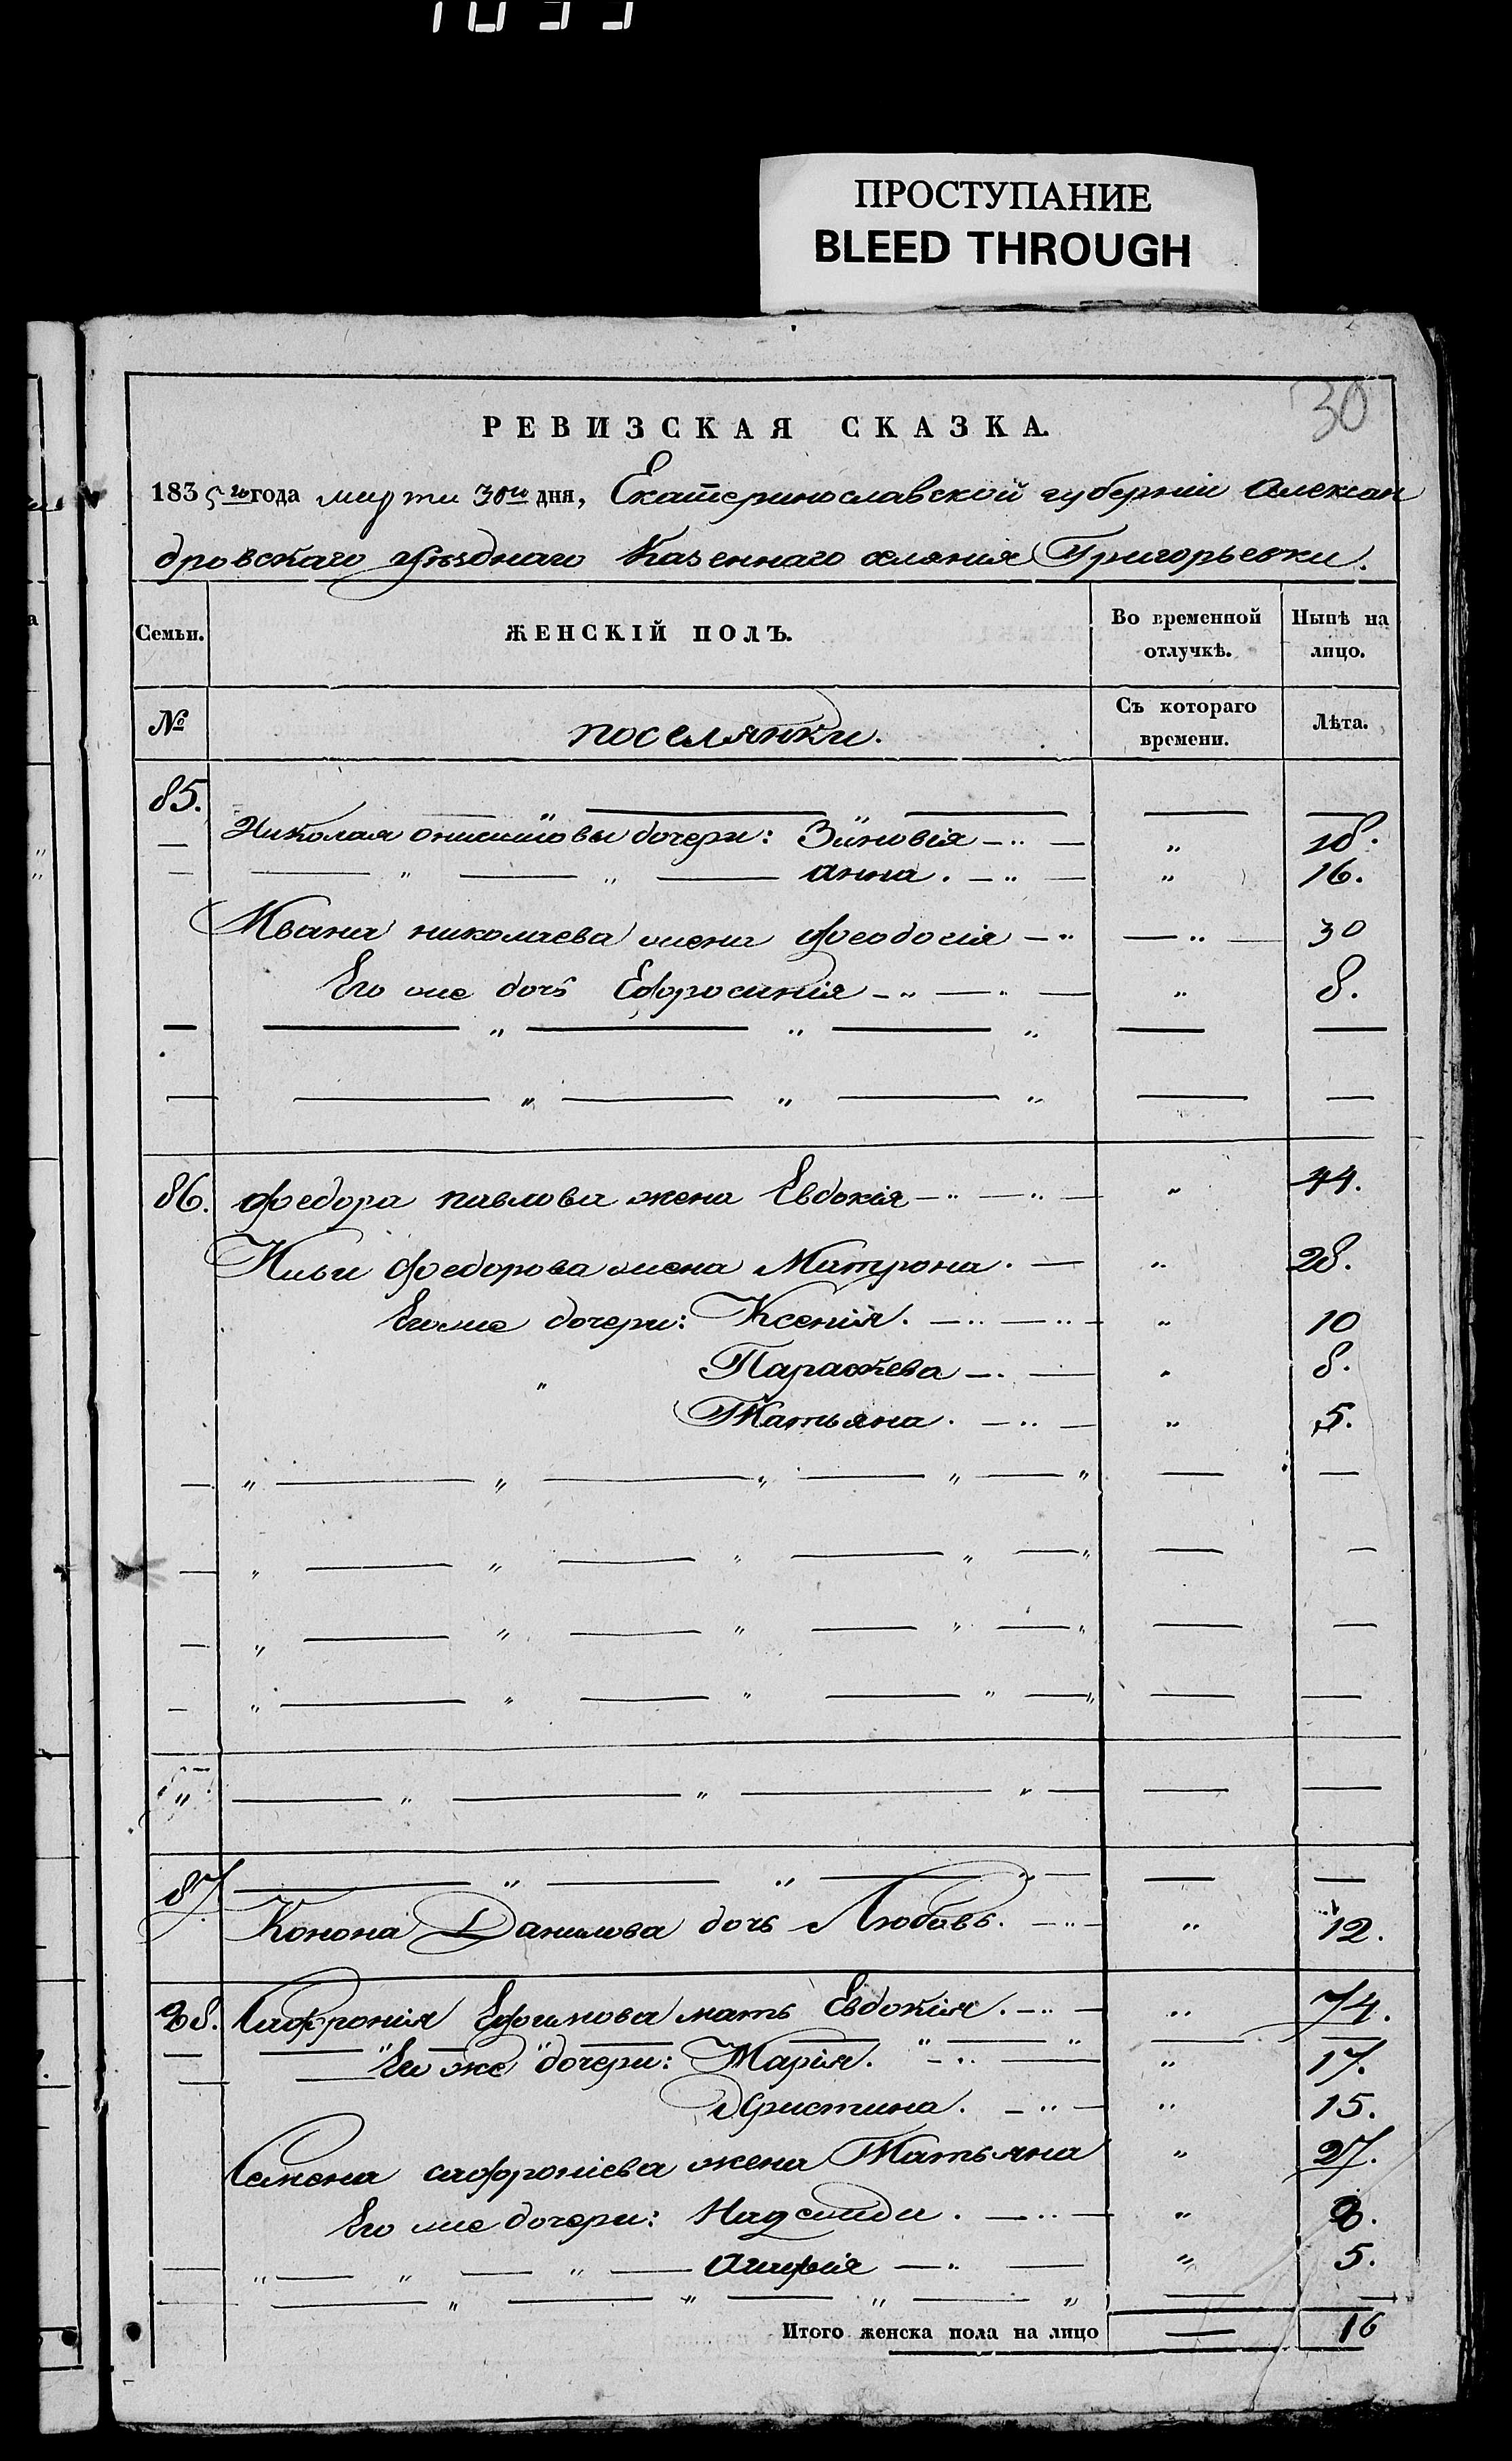 ПРОСТУПАНИЕ
BLEED THROUGH
30
РЕВИЗСКАЯ СКАЗКА.
1835го года марта 30го дня, Екатеринославской губерніи Алексан
дровскаго уѣзднаго Казеннаго селянія Григорьевки.
Семьи. ЖЕНСКІЙ ПОЛЪ. Во временной отлучкѣ. Нынѣ на лицо.
№ поселянки. Съ котораго времени. Лѣта.
85.
Николая дочери: Зиновія — „ 18.
„ „ анна. — „ 16.
Ивана николаева жена феодосія — „ 30
Его же дочь Ефросинія — „ 8.
86. федора павлова жена Евдокія — „ 44.
Ильи федорова жена Матрона. — „ 28.
Егоже дочери: Ксенія. — „ 10
„ Параскева — „ 8.
Татьяна. — „ 5.
87
Конона Данилова дочь Любовь. — „ 12.
88. Сафронія Ефимова мать Евдокія. — „ 74.
Его же дочери: Марія. — „ 17.
Христина. — „ 15.
Семена сафроніева жена Татьяна „ 27.
Его же дочери: Надежда. — „ 8.
„ „ „ агафія — „ 5.
Итого женска пола на лицо — 16